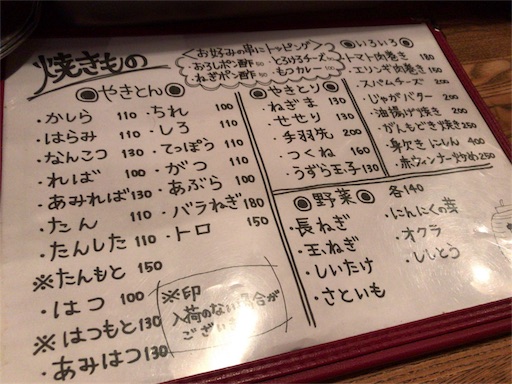 焼きもの
<お好みの串にトッピング>
・おろしポン酢 80 ・とろけるチーズ 90
・ねぎポン酢 80 ・もつカレー 100
◉やきとん◉
・かしら 110
・はらみ 110
・なんこつ 130
・ればー 100
・あみれば 130
・たん 110
・たんした 110
※たんもと 150
・はつ 100
※はつもと 130
・あみはつ 130
・ちれ 100
・しろ 110
・てっぽう 110
・がつ 110
・あぶら 100
・バラねぎ 180
・トロ 150
※印
入荷のない場合が
ござい
◉やきとり◉
・ねぎま 130
・せせり 130
・手羽先 200
・つくね 160
・うずら玉子 130
◉いろいろ◉
・トマト肉巻き 180
・エリンギ肉巻き 150
・スパムチーズ 200
・じゃがバター 200
・油揚げ焼き 200
・がんもどき焼き 250
・身欠きにしん 400
・赤ウィンナー炒め 250
◉野菜◉ 各140
・長ねぎ
・玉ねぎ
・しいたけ
・さといも
・にんにくの芽
・オクラ
・ししとう